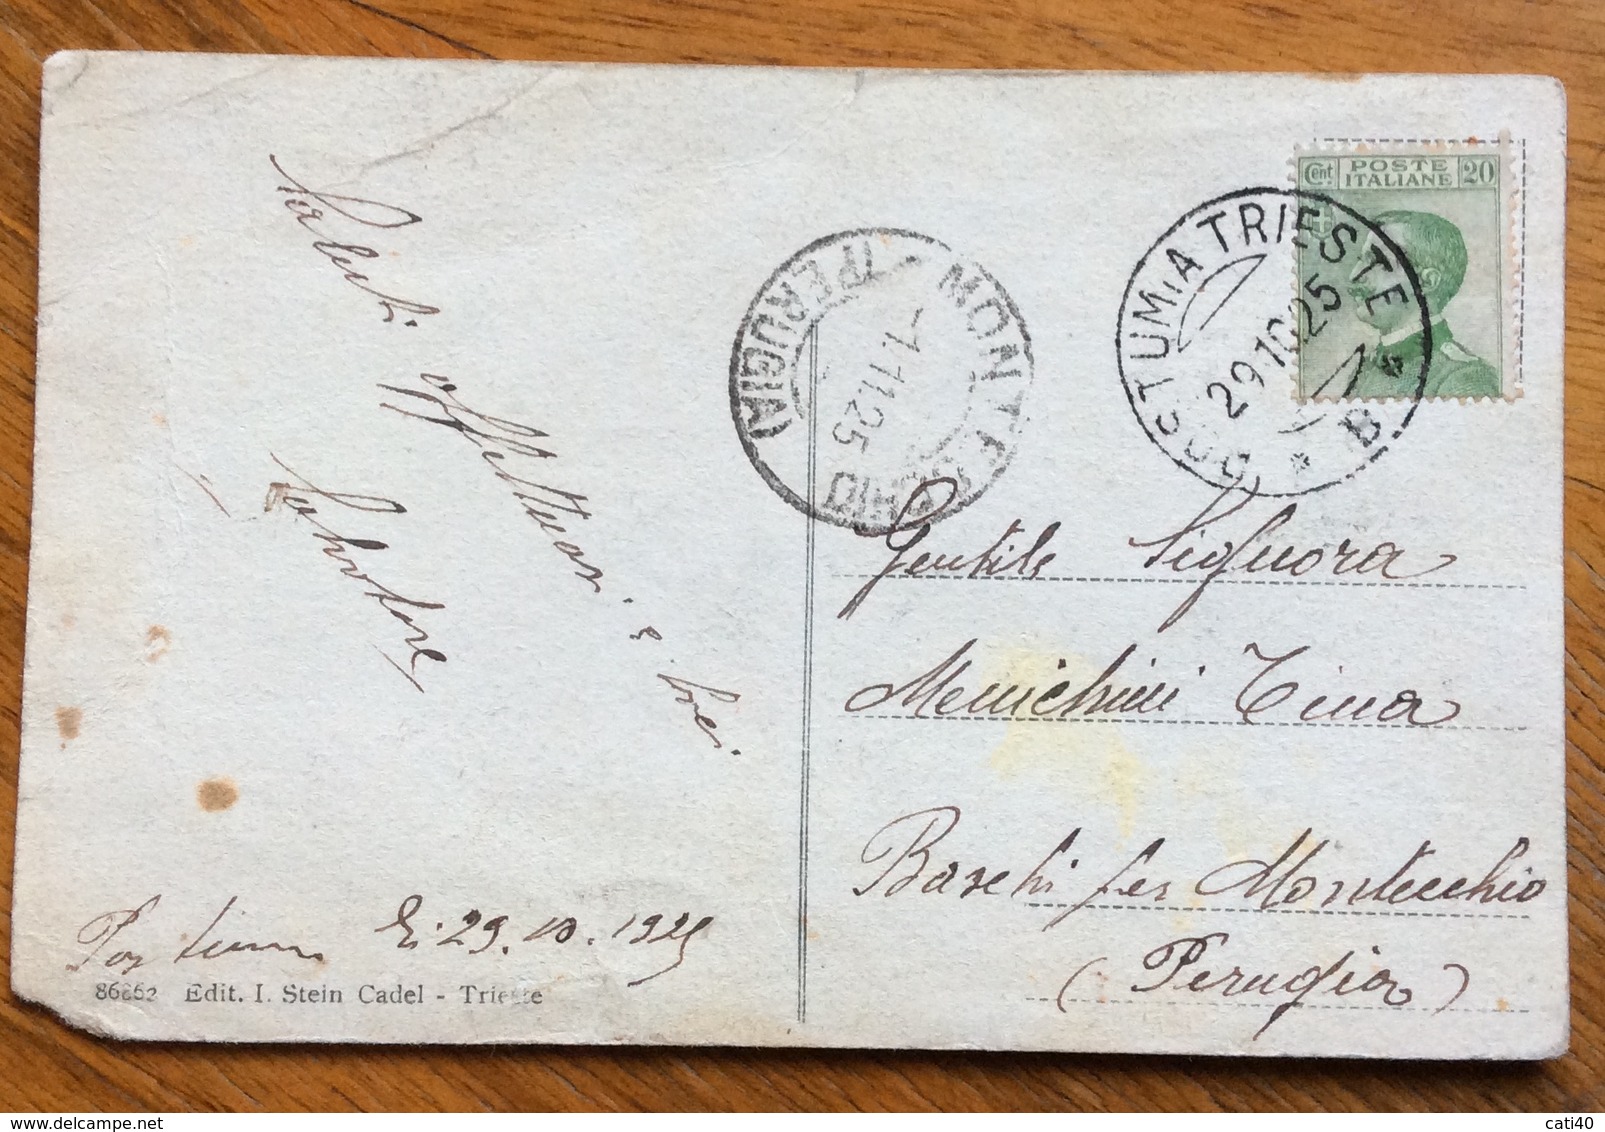 Saluti affettuosi e
Salvatore
Postumia li 29.10.1925
86862 Edit. I. Stein Cadel - Trieste
MONTECCHIO
(PERUGIA)
-1.11.25
POSTUMIA TRIESTE
29.10.25
* B *
Cent. POSTE ITALIANE 20
Gentile Signora
Menichini Tina
Baschi per Montecchio
(Perugia)
cati40